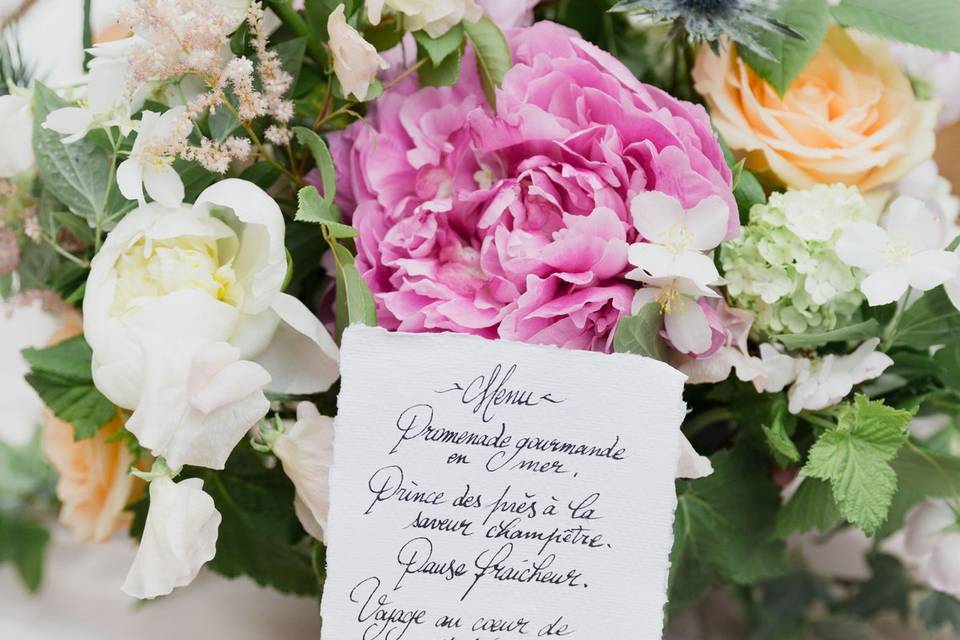 Menu
Promenade gourmande
en mer.
Prince des près à la
saveur champêtre.
Pause fraicheur.
Voyage au cœur de